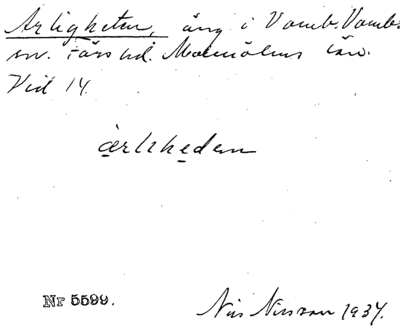 Ärligheten, äng i Vomb. Vombs
sn. Färs hd. Malmöhus län.
Vid 14.
ärlihedem
Nr 5599.
Nils Nilsson 1937.